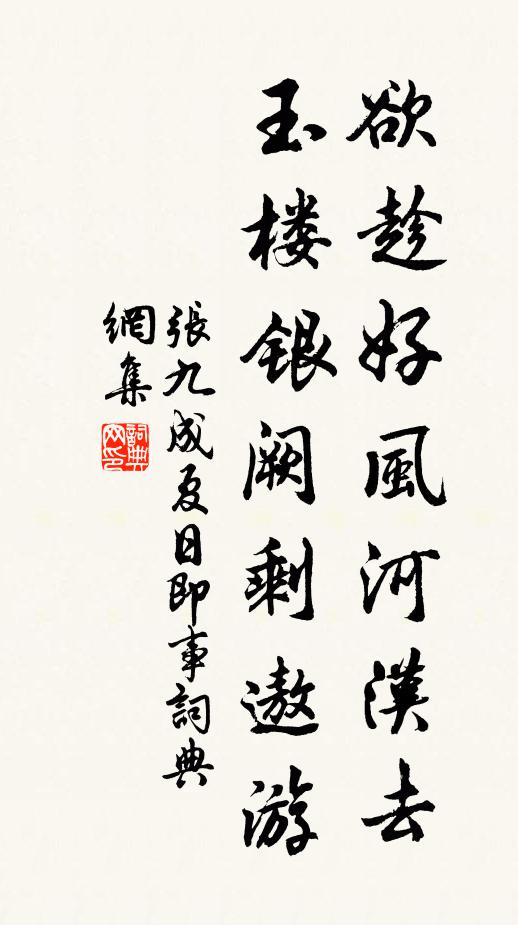 欲趁好風河漢去
玉楼銀阙剩遨游
張九成夏日即事詞典
網集
詞典
网印